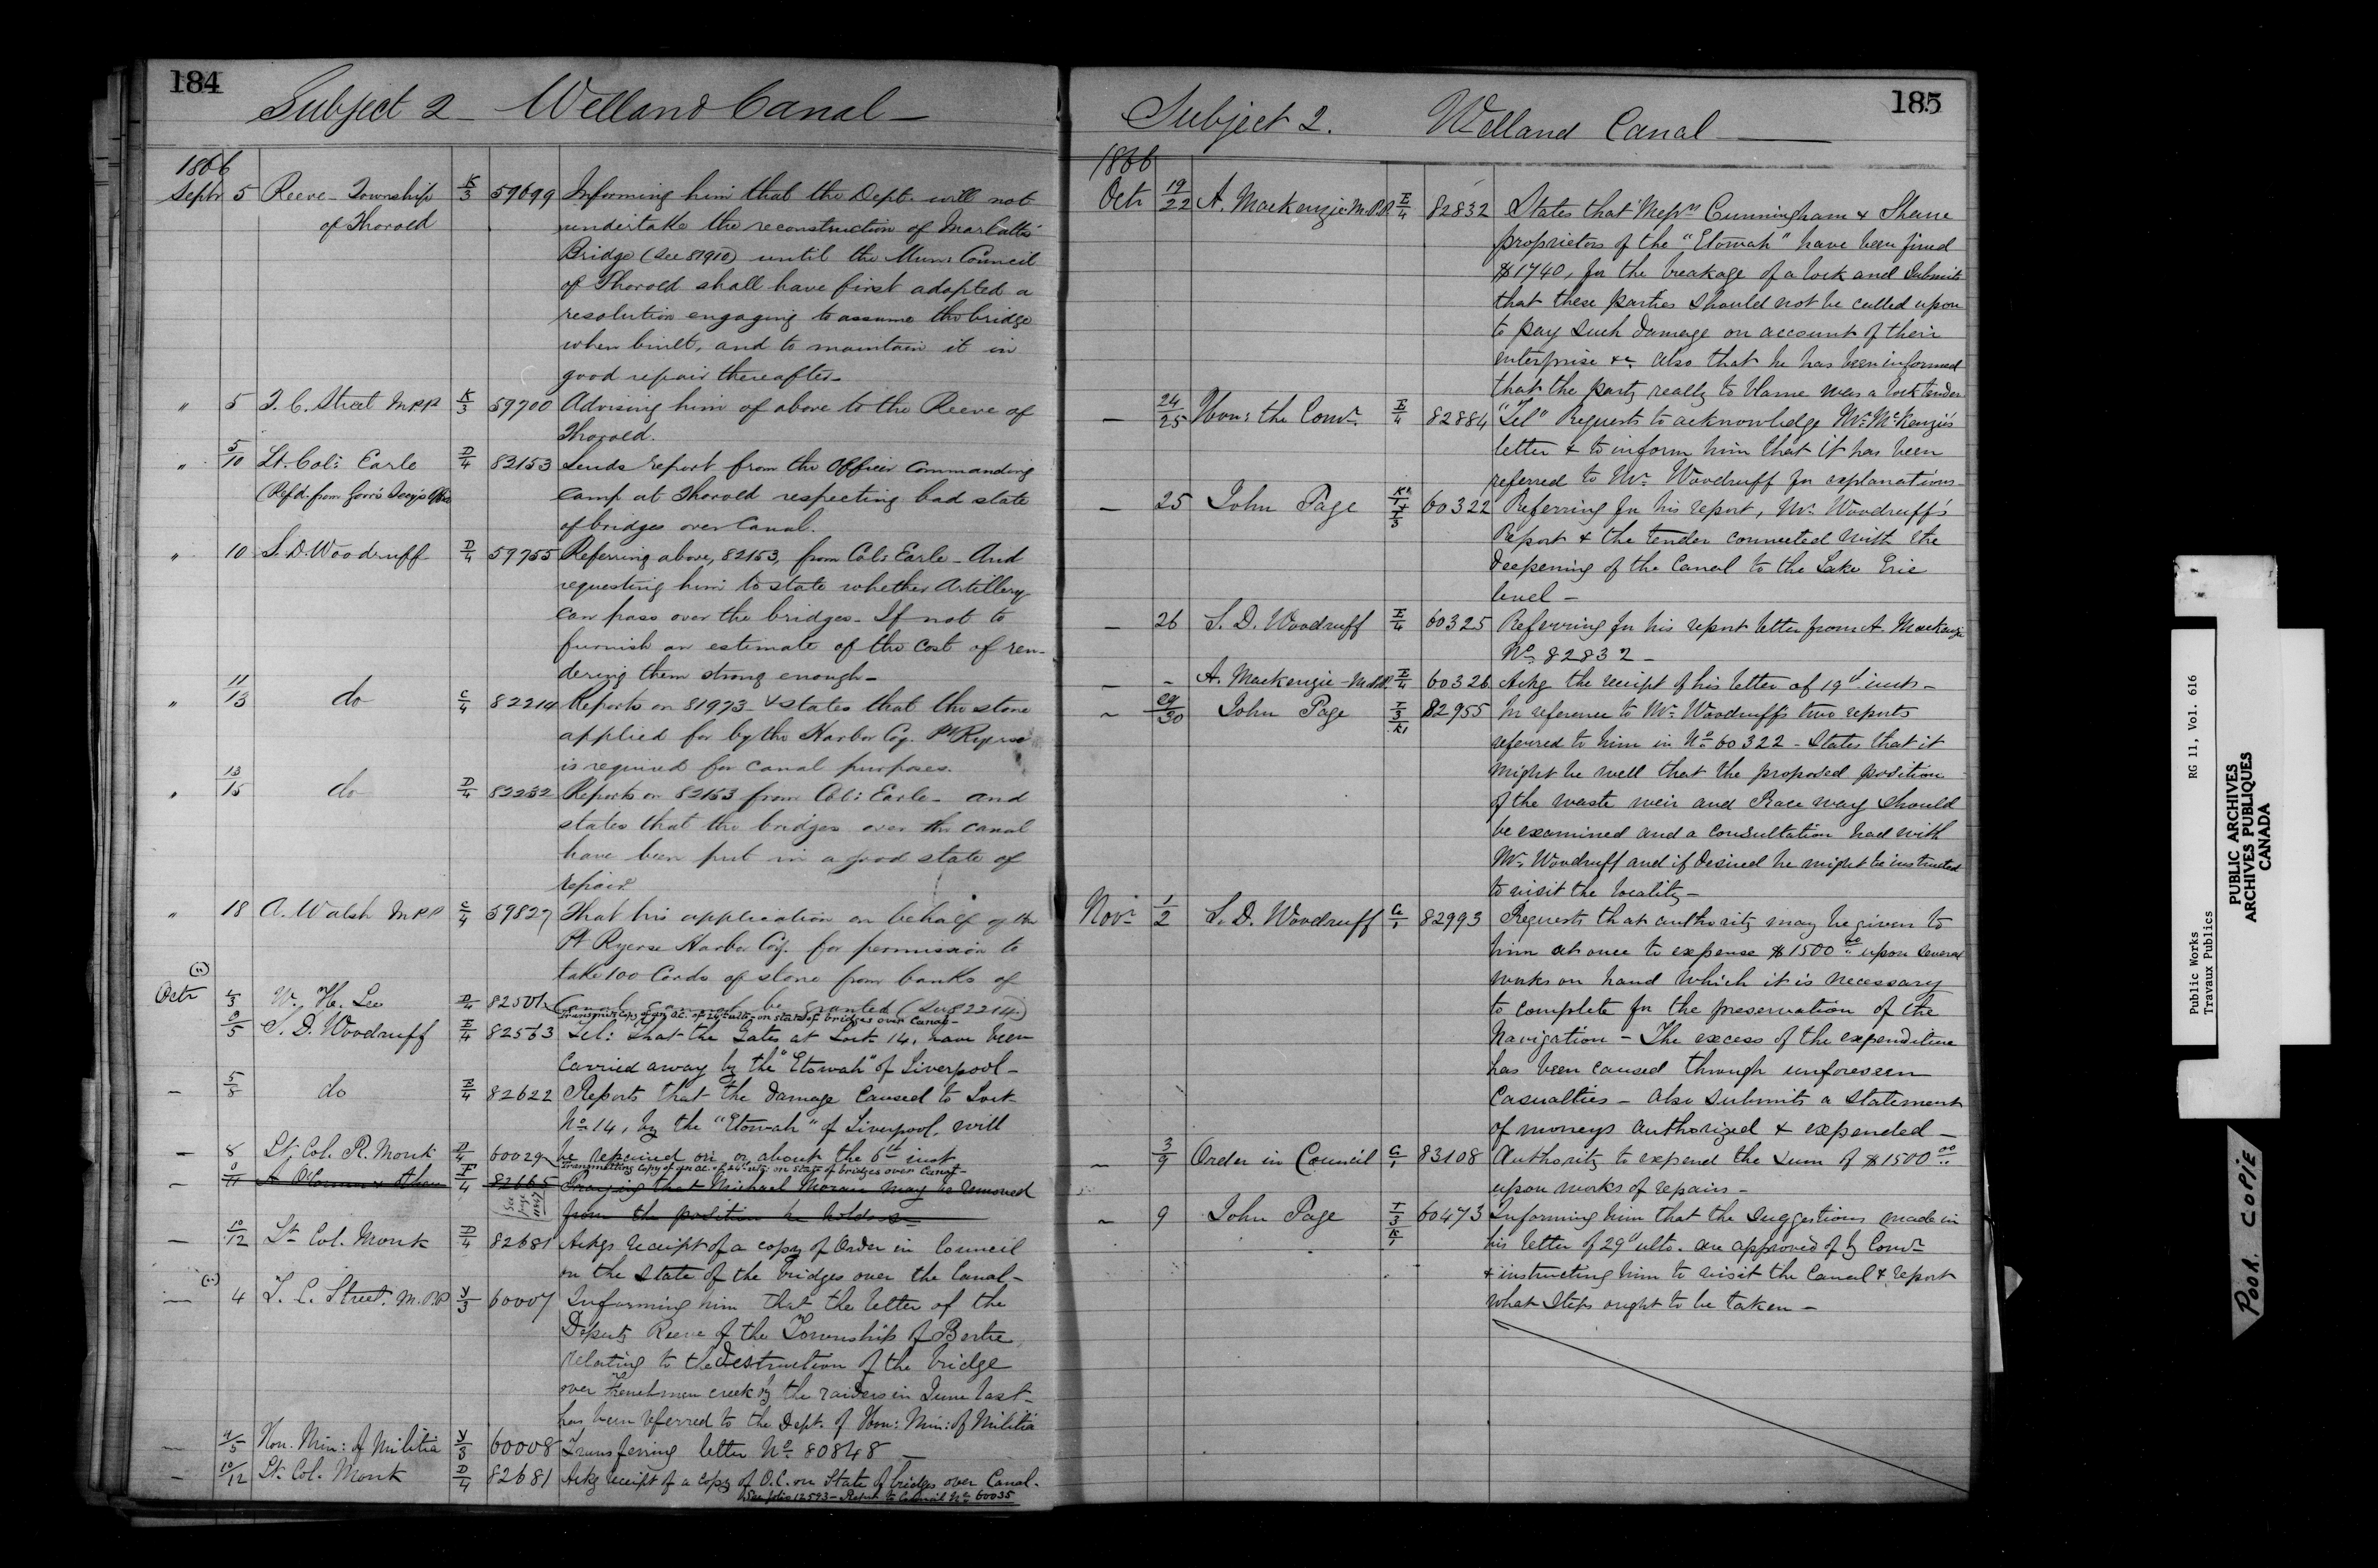 184
Subject 2 — Welland Canal —
1866
Septr 5 Reeve - Township K/3 59699 Informing him that the Dept. will not
of Thorold undertake the reconstruction of Marlatts'
Bridge (See 81910) until the Mun: Council
of Thorold shall have first adopted a
resolution engaging to assume the bridge
when built, and to maintain it in
good repair thereafter.
" 5 T. C. Street M.P.P. K/3 59700 Advising him of above to the Reeve of
Thorold.
" 5/10 Lt. Col: Earle D/4 82153 Sends report from the Officer Commanding
(Refd. from Govr's Secy's Office Camp at Thorold respecting bad state
of bridges over Canal.
" 10 S. D. Woodruff D/4 59755 Referring above, 82153, from Col: Earle - And
requesting him to state whether Artillery
can pass over the bridges - If not to
furnish an estimate of the cost of ren-
dering them strong enough -
" 11/13 do C/4 82214 Reports on 81973 - & states that the stone
applied for by the Harbor Coy. Pt Ryerse
is required for canal purposes.
" 13/15 do D/4 82232 Reports on 82153 from Col: Earle - and
states that the bridges over the canal
have been put in a good state of
repair
" 18 A. Walsh M.P.P. C/4 59827 That his application on behalf of the
Pt Ryerse Harbor Coy. for permission to
take 100 Cords of stone from banks of
Canal cannot be granted (See 82214)
Octr 2/3 W. H. Lee D/4 82501 Transmits Copy of an O.C. of 24th ulto. on state of bridges over Canal -
3/5 S. D. Woodruff E/4 82563 Tel: That the Gates at Lock 14, have been
carried away by the "Etowah" of Liverpool -
— 5/8 do E/4 82622 Reports that the damage caused to Lock
No. 14, by the "Etowah" of Liverpool, will
be repaired on or about the 6th inst
— 8 Lt. Col. R. Monk D/4 60029 Transmitting Copy of an O.C. of 24th ulto. on state of bridges over Canal -
— 8/11 A O'Connor & others F/4 82665 Praying that Michael Moran may be removed
See page 1147 from the position he holds
— 10/12 Lt Col. Monk D/4 82681 Ackgs receipt of a copy of Order in Council
on the state of the bridges over the Canal -
— 4 T. C. Street. M.P.P. Y/3 60007 Informing him that the letter of the
Deputy Reeve of the Township of Bertie
relating to the destruction of the bridge
over Frenchmen creek by the raiders in June last -
has been referred to the Dept. of Hon: Min: of Militia
— 4/5 Hon. Min: of Militia Y/3 60008 Transferring letter No 80848 —
— 10/12 Lt. Col. Monk D/4 82681 Ackg receipt of a copy of O.C. on State of bridges over Canal.
See folio 12593 - Report to Council No 60035
185
Subject 2. Welland Canal —
1866
Octr 19/22 A. Mackenzie M.P.P. E/4 82832 States that Messrs Cunningham & Shaue
proprietors of the "Etowah" have been fined
$1740, for the breakage of a lock and submits
that these parties should not be called upon
to pay such damage on account of their
enterprise &c. also that he has been informed
that the party really to blame was a lock tender
— 24/25 Hon: the Comr. E/4 82884 "Tel" Requests to acknowledge Mr. McKenzie's
letter & to inform him that it has been
referred to Mr. Woodruff for explanations -
— 25 John Page 60322 Referring for his report, Mr. Woodruff's
Report & the tender connected with the
deepening of the Canal to the Lake Erie
level -
— 26 S. D. Woodruff E/4 60325 Referring for his report letter from A. Mackenzie
No. 82832 -
— - A. Mackenzie - M.P.P. E/4 60326 Ackg the receipt of his letter of 19th inst -
~ 29/30 John Page 82955 In reference to Mr. Woodruff's two reports
referred to him in No 60322 - States that it
might be well that the proposed position
of the waste weir and Race way should
be examined and a consultation had with
Mr. Woodruff and if desired he might be instructed
to visit the locality -
Novr 1/2 S. D. Woodruff G/1 82993 Requests that authority may be given to
him at once to expense $1500.00 upon several
works on hand which it is necessary
to complete for the preservation of the
Navigation - The excess of the expenditure
has been caused through unforeseen
Casualties - Also submits a statement
of moneys authorized & expended -
~ 3/9 Order in Council G/1 83108 Authority to expend the sum of $1500.00
upon works of repairs -
~ 9 John Page 60473 Informing him that the suggestions made in
his letter of 29th ulto. are approved of by Comr
& instructing him to visit the Canal & report
what steps ought to be taken -
Public Works RG 11, Vol. 616
Travaux Publics
PUBLIC ARCHIVES
ARCHIVES PUBLIQUES
CANADA
POOR COPIE